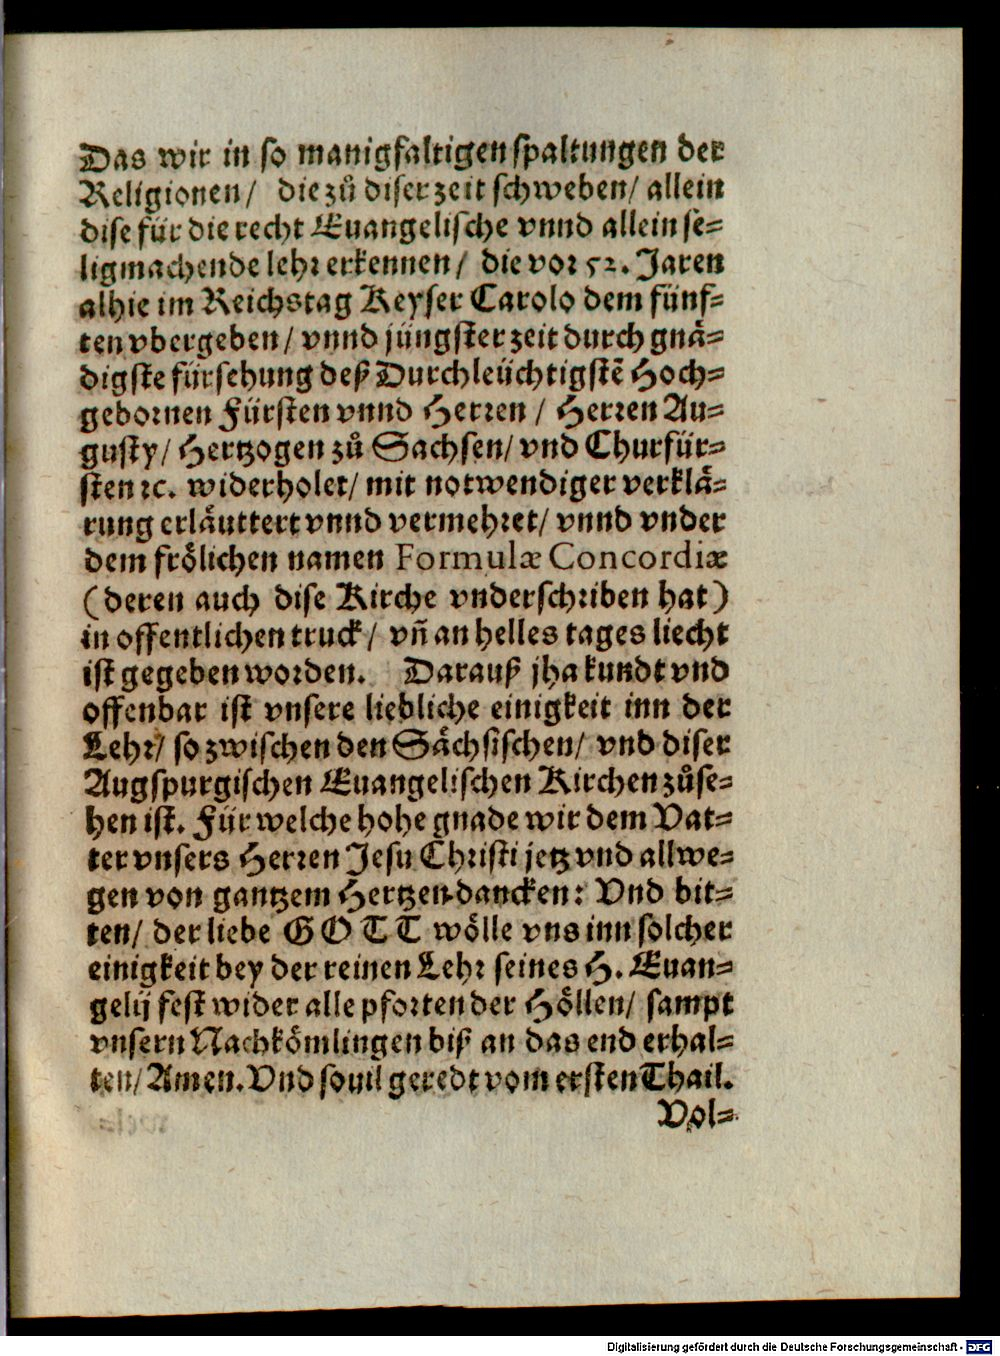 Das wir in so manigfaltigen spaltungen der
Religionen/ die zů diser zeit schweben/ allein
dise für die recht Euangelische vnnd allein se⸗
ligmachende lehr erkennen/ die vor 52. Jaren
alhie im Reichstag Keyser Carolo dem fünf⸗
ten vbergeben/ vnnd jüngster zeit durch gnä⸗
digste fürsehung deß Durchleüchtigstẽ Hoch⸗
gebornen Fürsten vnnd Herren / Herren Au⸗
gusty/ Hertzogen zů Sachsen/ vnd Churfür⸗
sten ꝛc. widerholet/ mit notwendiger verklä⸗
rung erläuttert vnnd vermehret/ vnnd vnder
dem frölichen namen Formulæ Concordiæ
(deren auch dise Kirche vnderschriben hat)
in offentlichen truck/ vñ an helles tages liecht
ist gegeben worden. Darauß jha kundt vnd
offenbar ist vnsere liebliche einigkeit inn der
Lehr/ so zwischen den Sächsischen/ vnd diser
Augspurgischen Euangelischen Kirchen zůse⸗
hen ist. Für welche hohe gnade wir dem Vat⸗
ter vnsers Herren Jesu Christi jetz vnd allwe⸗
gen von gantzem Hertzen dancken: Vnd bit⸗
ten/ der liebe GOTT wölle vns inn solcher
einigkeit bey der reinen Lehr seines H. Euan⸗
gelij fest wider alle pforten der Höllen/ sampt
vnsern Nachkömlingen biß an das end erhal⸗
ten/ Amen. Vnd souil geredt vom ersten Thail.
Vol⸗
Digitalisierung gefördert durch die Deutsche Forschungsgemeinschaft - DFG